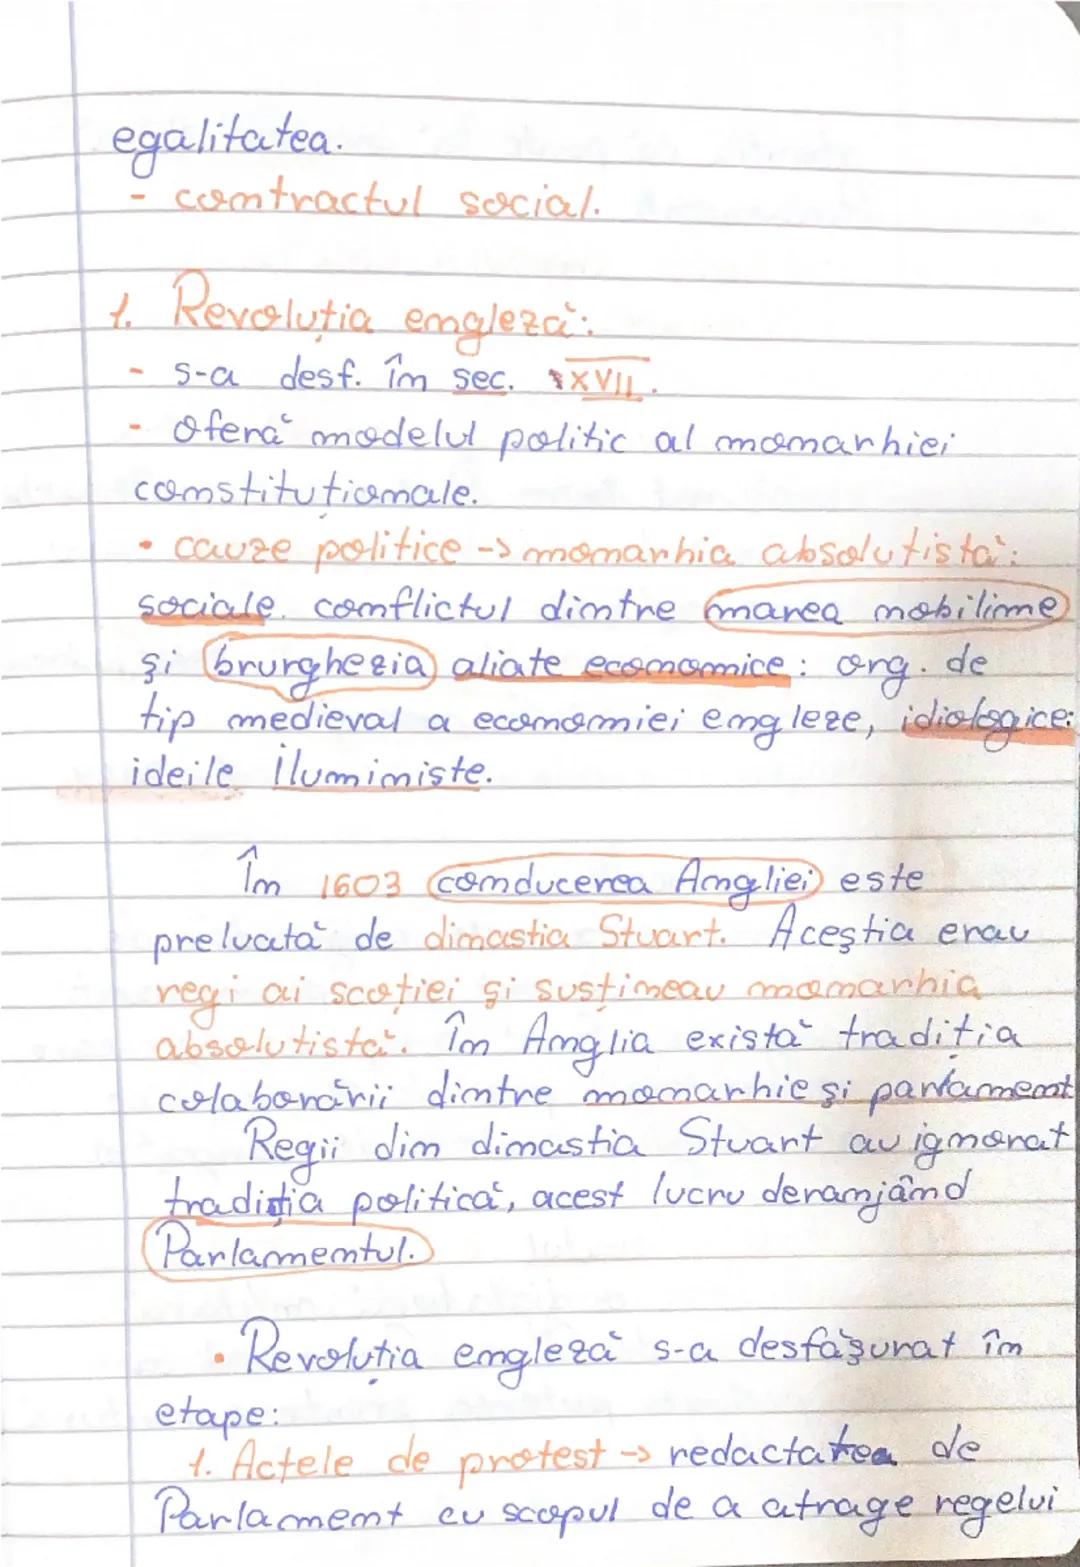 egalitatea.
- contractul social.
1. Revoluția engleză:
- s-a desf. în sec. XVII.
- Oferă modelul politic al monarhiei
constituționale.
• cauze politice -> monarhia absolutistă:
sociale conflictul dintre marea nobilime
și brurghezia aliate economice: org. de
tip medieval a economiei engleze, idiologice:
ideile iluministe.
În 1603 conducerea Angliei este
preluată de dinastia Stuart. Aceștia erau
regi ai scoției și susțineau monarhia
absolutistă. În Anglia există tradiția
colaborării dintre monarhie și parlament
Regii din dinastia Stuart au ignorat
tradiția politică, acest lucru deranjând
Parlamentul.
• Revoluția engleză s-a desfășurat în
etape:
1. Actele de protest -> redactatea de
Parlament cu scopul de a atrage regelui